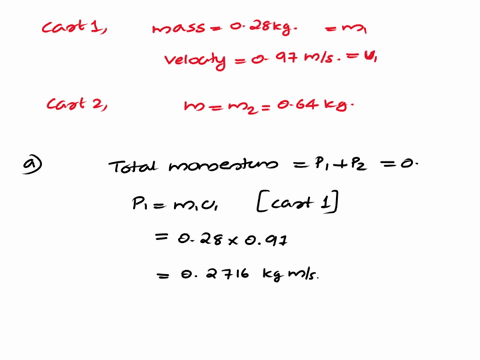 Cart 1, mass = 0.28kg. = m₁
Velocity = 0.97 m/s. = u₁
Cart 2, m = m₂ = 0.64 kg.
a) Total momentum = P₁ + P₂ = 0.
P₁ = m₁u₁ [cart 1]
= 0.28 × 0.97
= 0.2716 kg m/s.